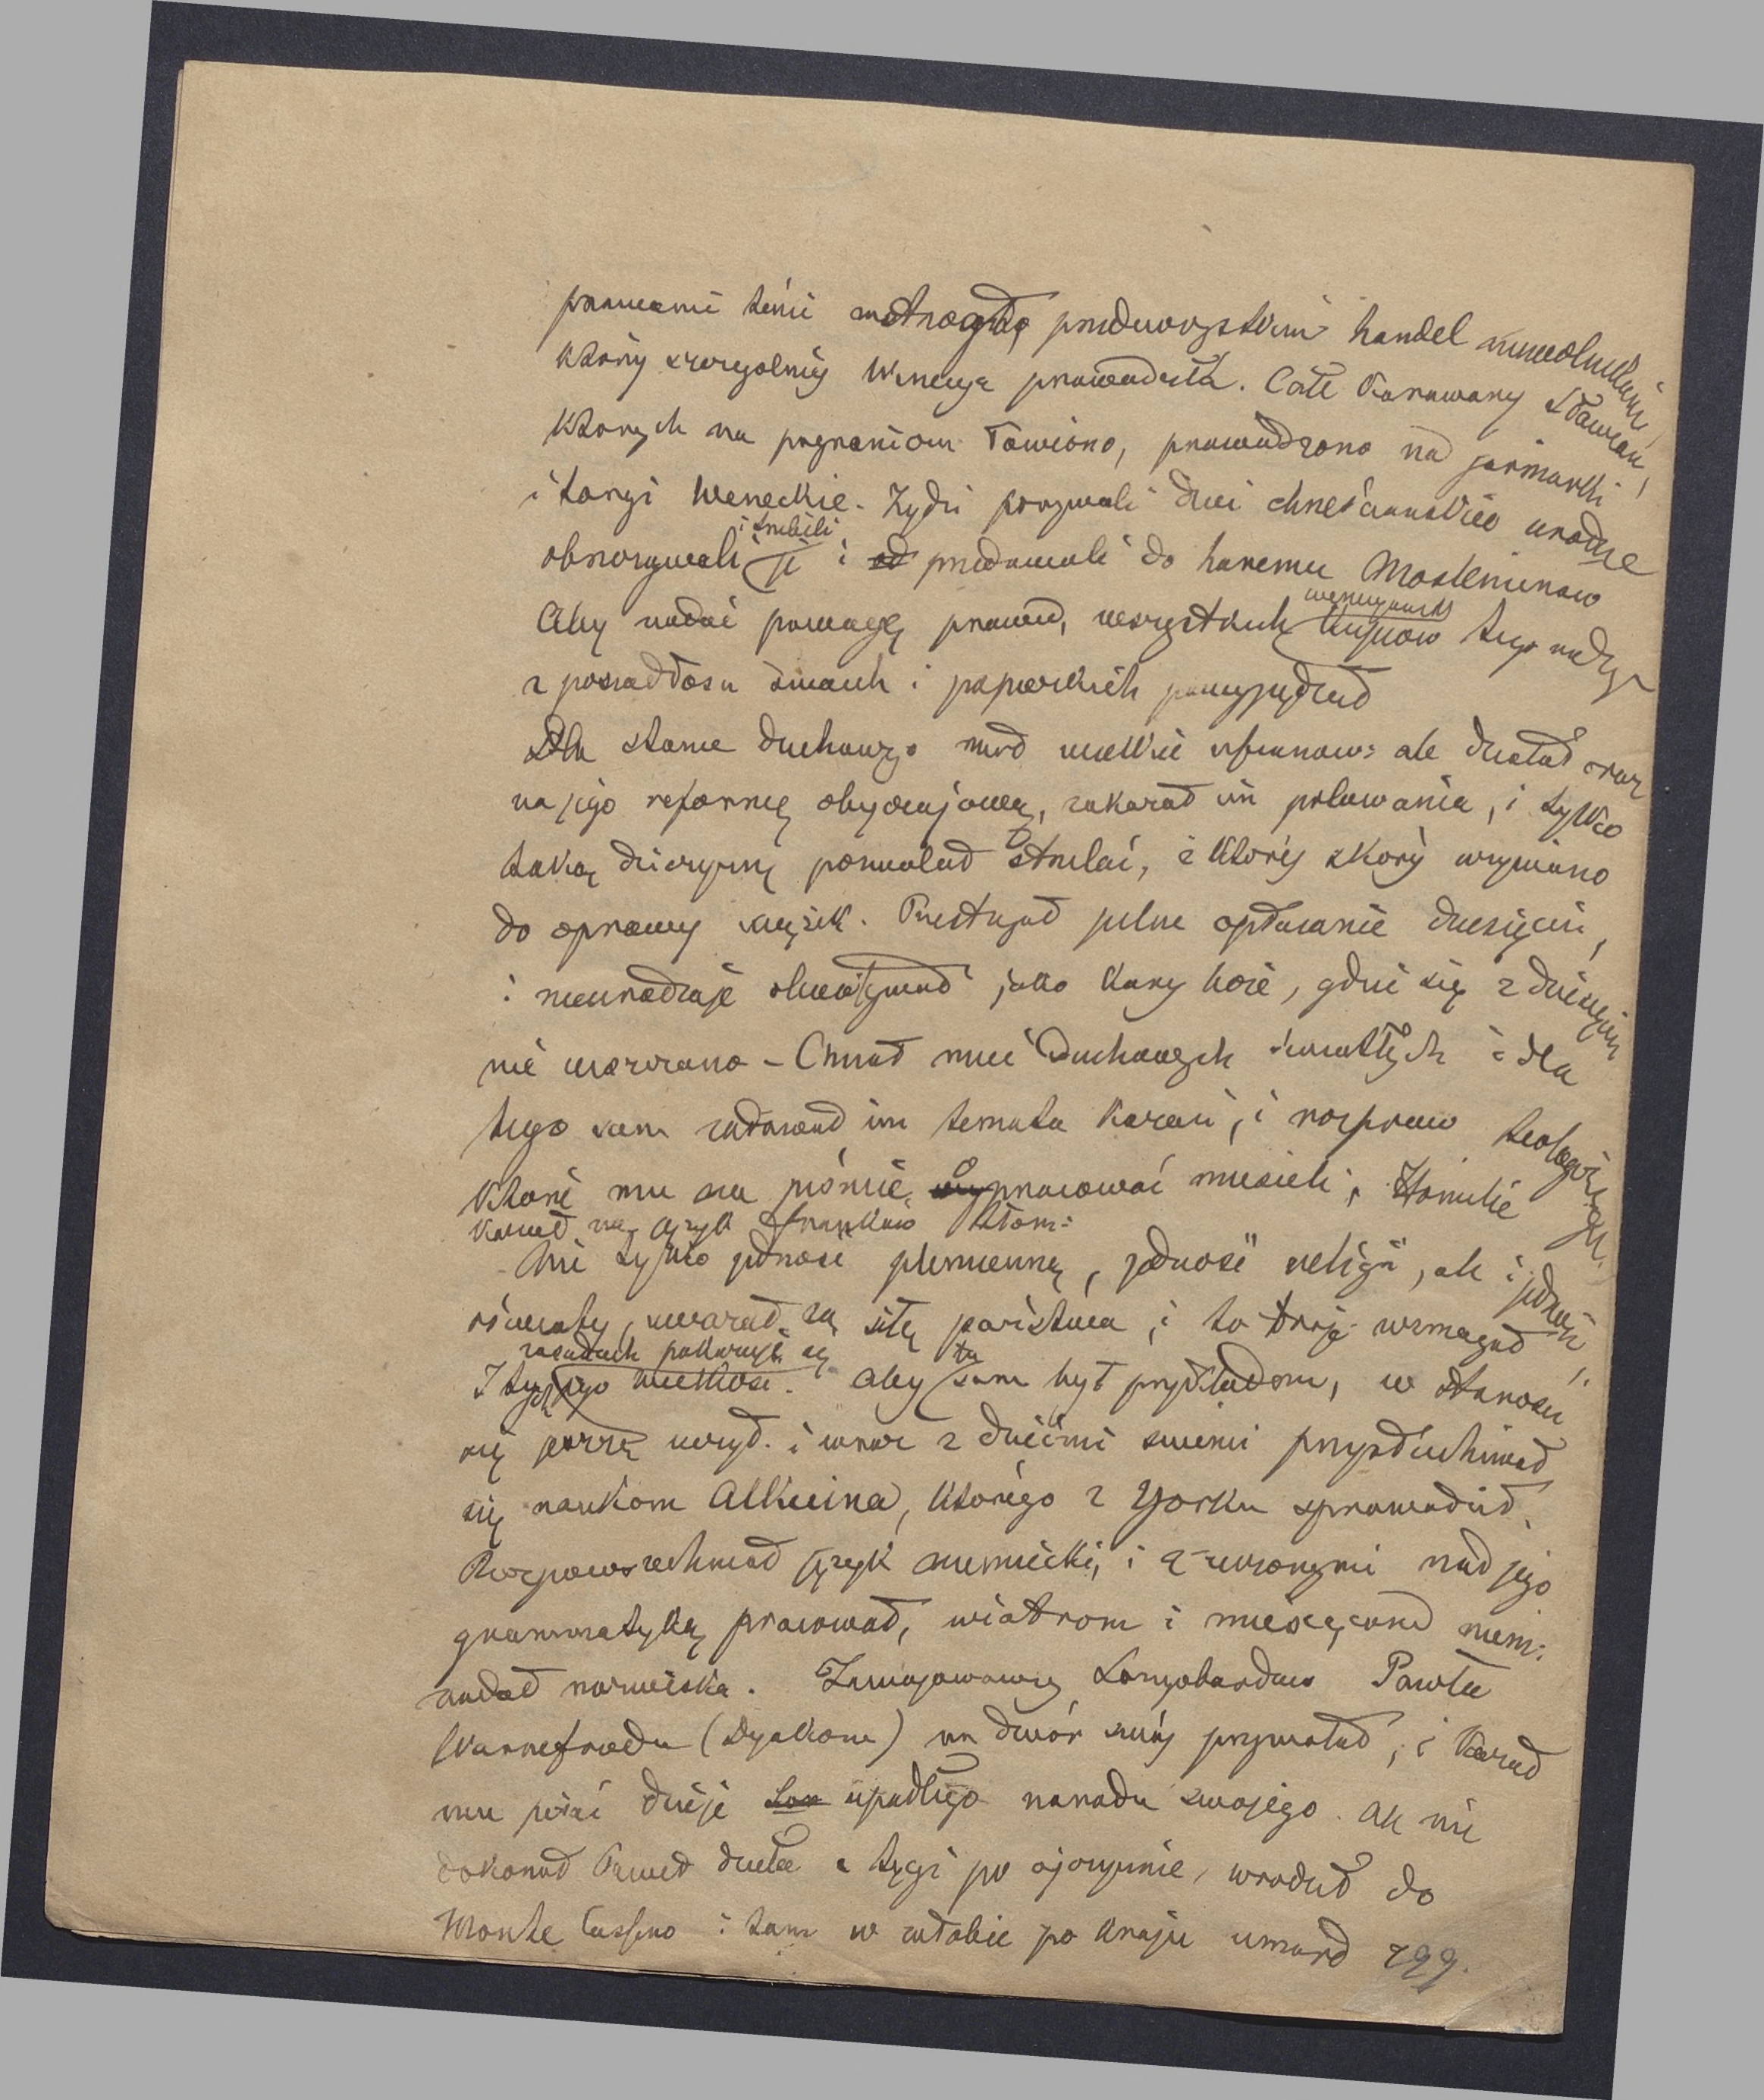 prawami temi przedewszystkim handel niewolnikami,
który szczególniej Wenecya prowadziła. Całe karawany Sławian,
których na pograniczu łowiono, prowadzono na jarmarki
i targi Weneckie. Żydzi porywali dzieci chrześciańskie urodne
obrzezywali i trzebili je i przedawali do haremu Mosleminów
Aby nadać powagę prawu, wszystkich weneyanów kupców tego
z posiadłości swoich i papiezkich powypędzał
Dla stanu duchownego miał wielkie uszanow: ale działał oraz
na jego reformę obyczajową, zakazał im polowania, i tylko
taką dzierzynę pozwalał strzelać, z której skóry używano
do oprawy książek. Przestrzegał pilne opłacanie dziesięcin,
i nieurodzaje jako karę boże, gdzie się z dziesięcin
nie uiszczano – Chciał mieć Duchownych światłych i dla
tego sam zadawał im temata kazań, i rozpraw teologicznych
które mu na piśmie wypracować musieli, Homilie
kazał na język franków tłom:
Nie tylko jedność plemienną, jedność religii, ale i jedność
oświaty, uważał za siłę państwa, i to troje wzmagał
I tych zasadach pokazuje się jego wielkość. Aby tu sam być przykładem, w starości
się jeszcze uczył. i wraz z dziećmi swemi przysłuchiwał
się naukom Alkuina, którego z Yorku sprowadził.
Rozpowszechniał język niemiecki, i z uczonymi nad jego
grammatyką pracował, wiatrom i miesiącom niem:
nadał nazwiska. Zawojowawszy Longobardów Pawła
Warnefreda (Dyakona) na dwór swój przywołał, i kazał
mu pisać dzieje upadłego narodu swojego. Ale nie
dokonał Paweł dzieła z tęsk po ojczyznie, wrócił do
Monte Cassino i tam w żałobie po kraju umarł 799.